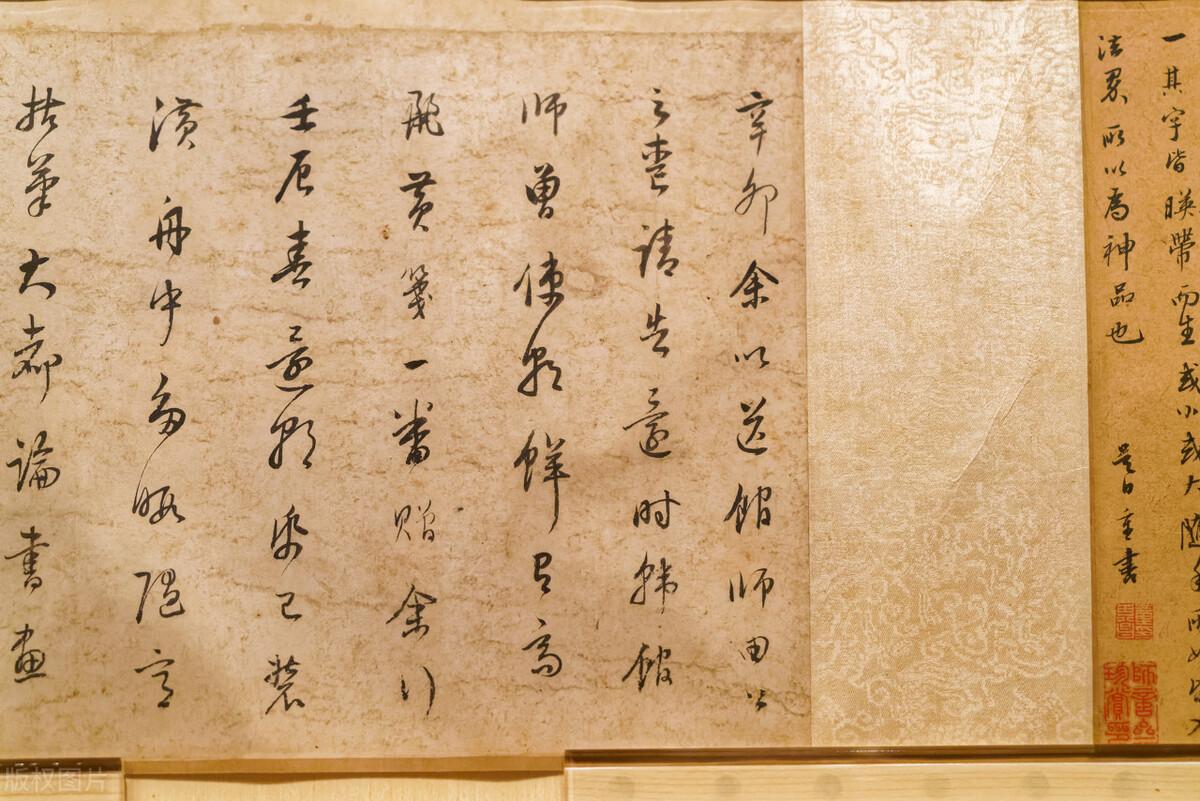 一其字皆暎帶而生或小或大隨手所如皆入
法界所以為神品也 其昌重書
辛卯余以送館師田公
之喪請告還時韓館
師曾使朝鮮以高
麗黃箋一番贈余行
壬辰春還朝紙已裝
潢舟中多暇隨意
拈筆大都論書畫
版权图片